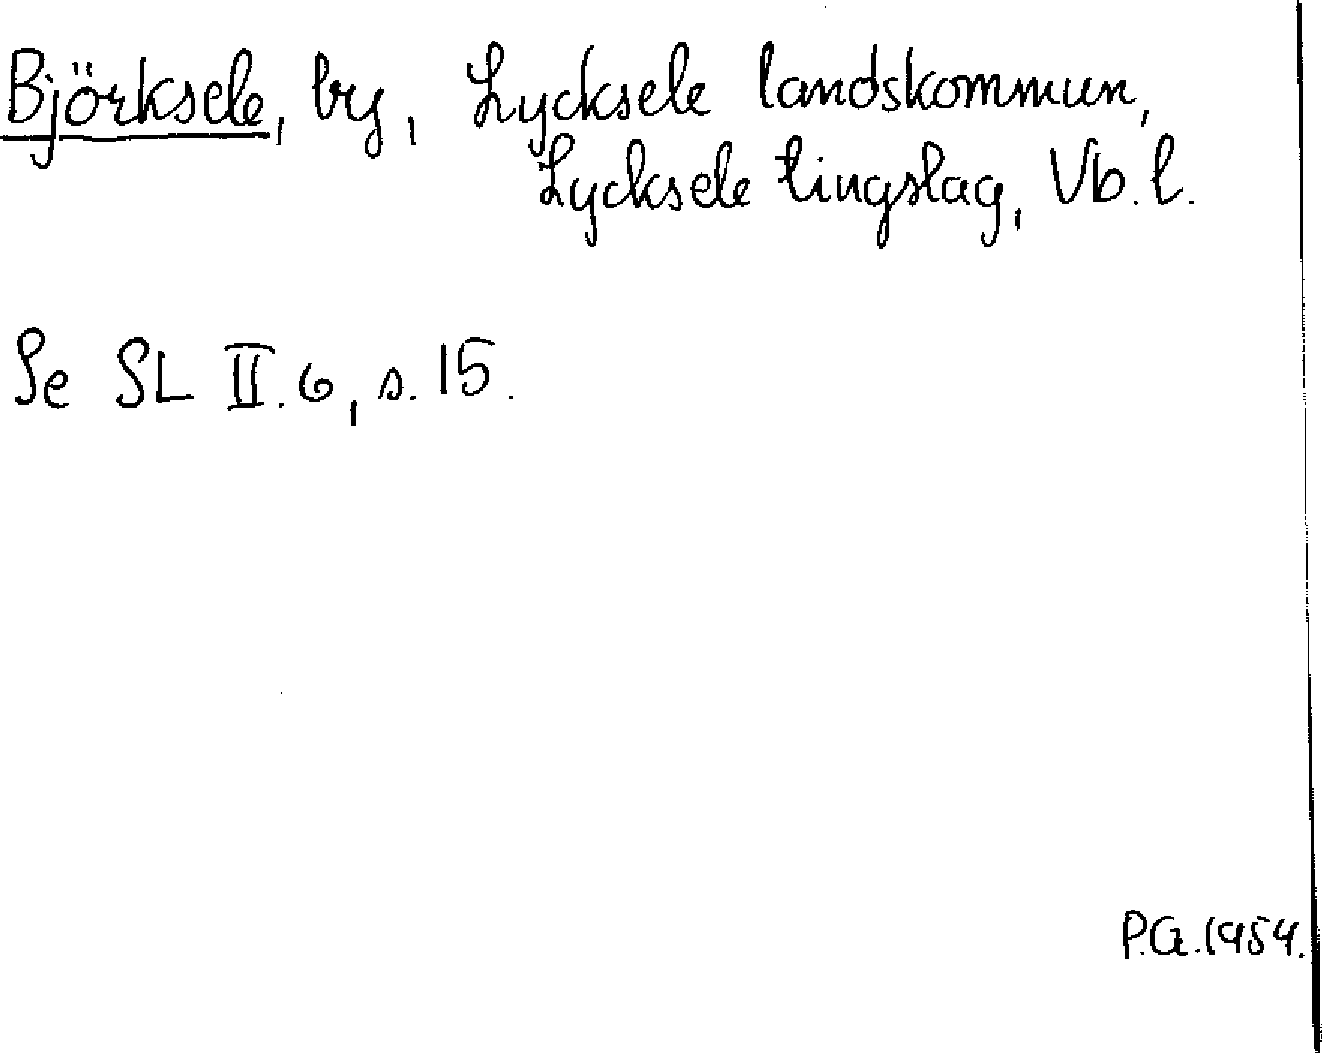 Björksele, by, Lycksele landskommun,
Lycksele tingslag, Vb. l.
Se SL II.6, s. 15.
P.G. 1954.